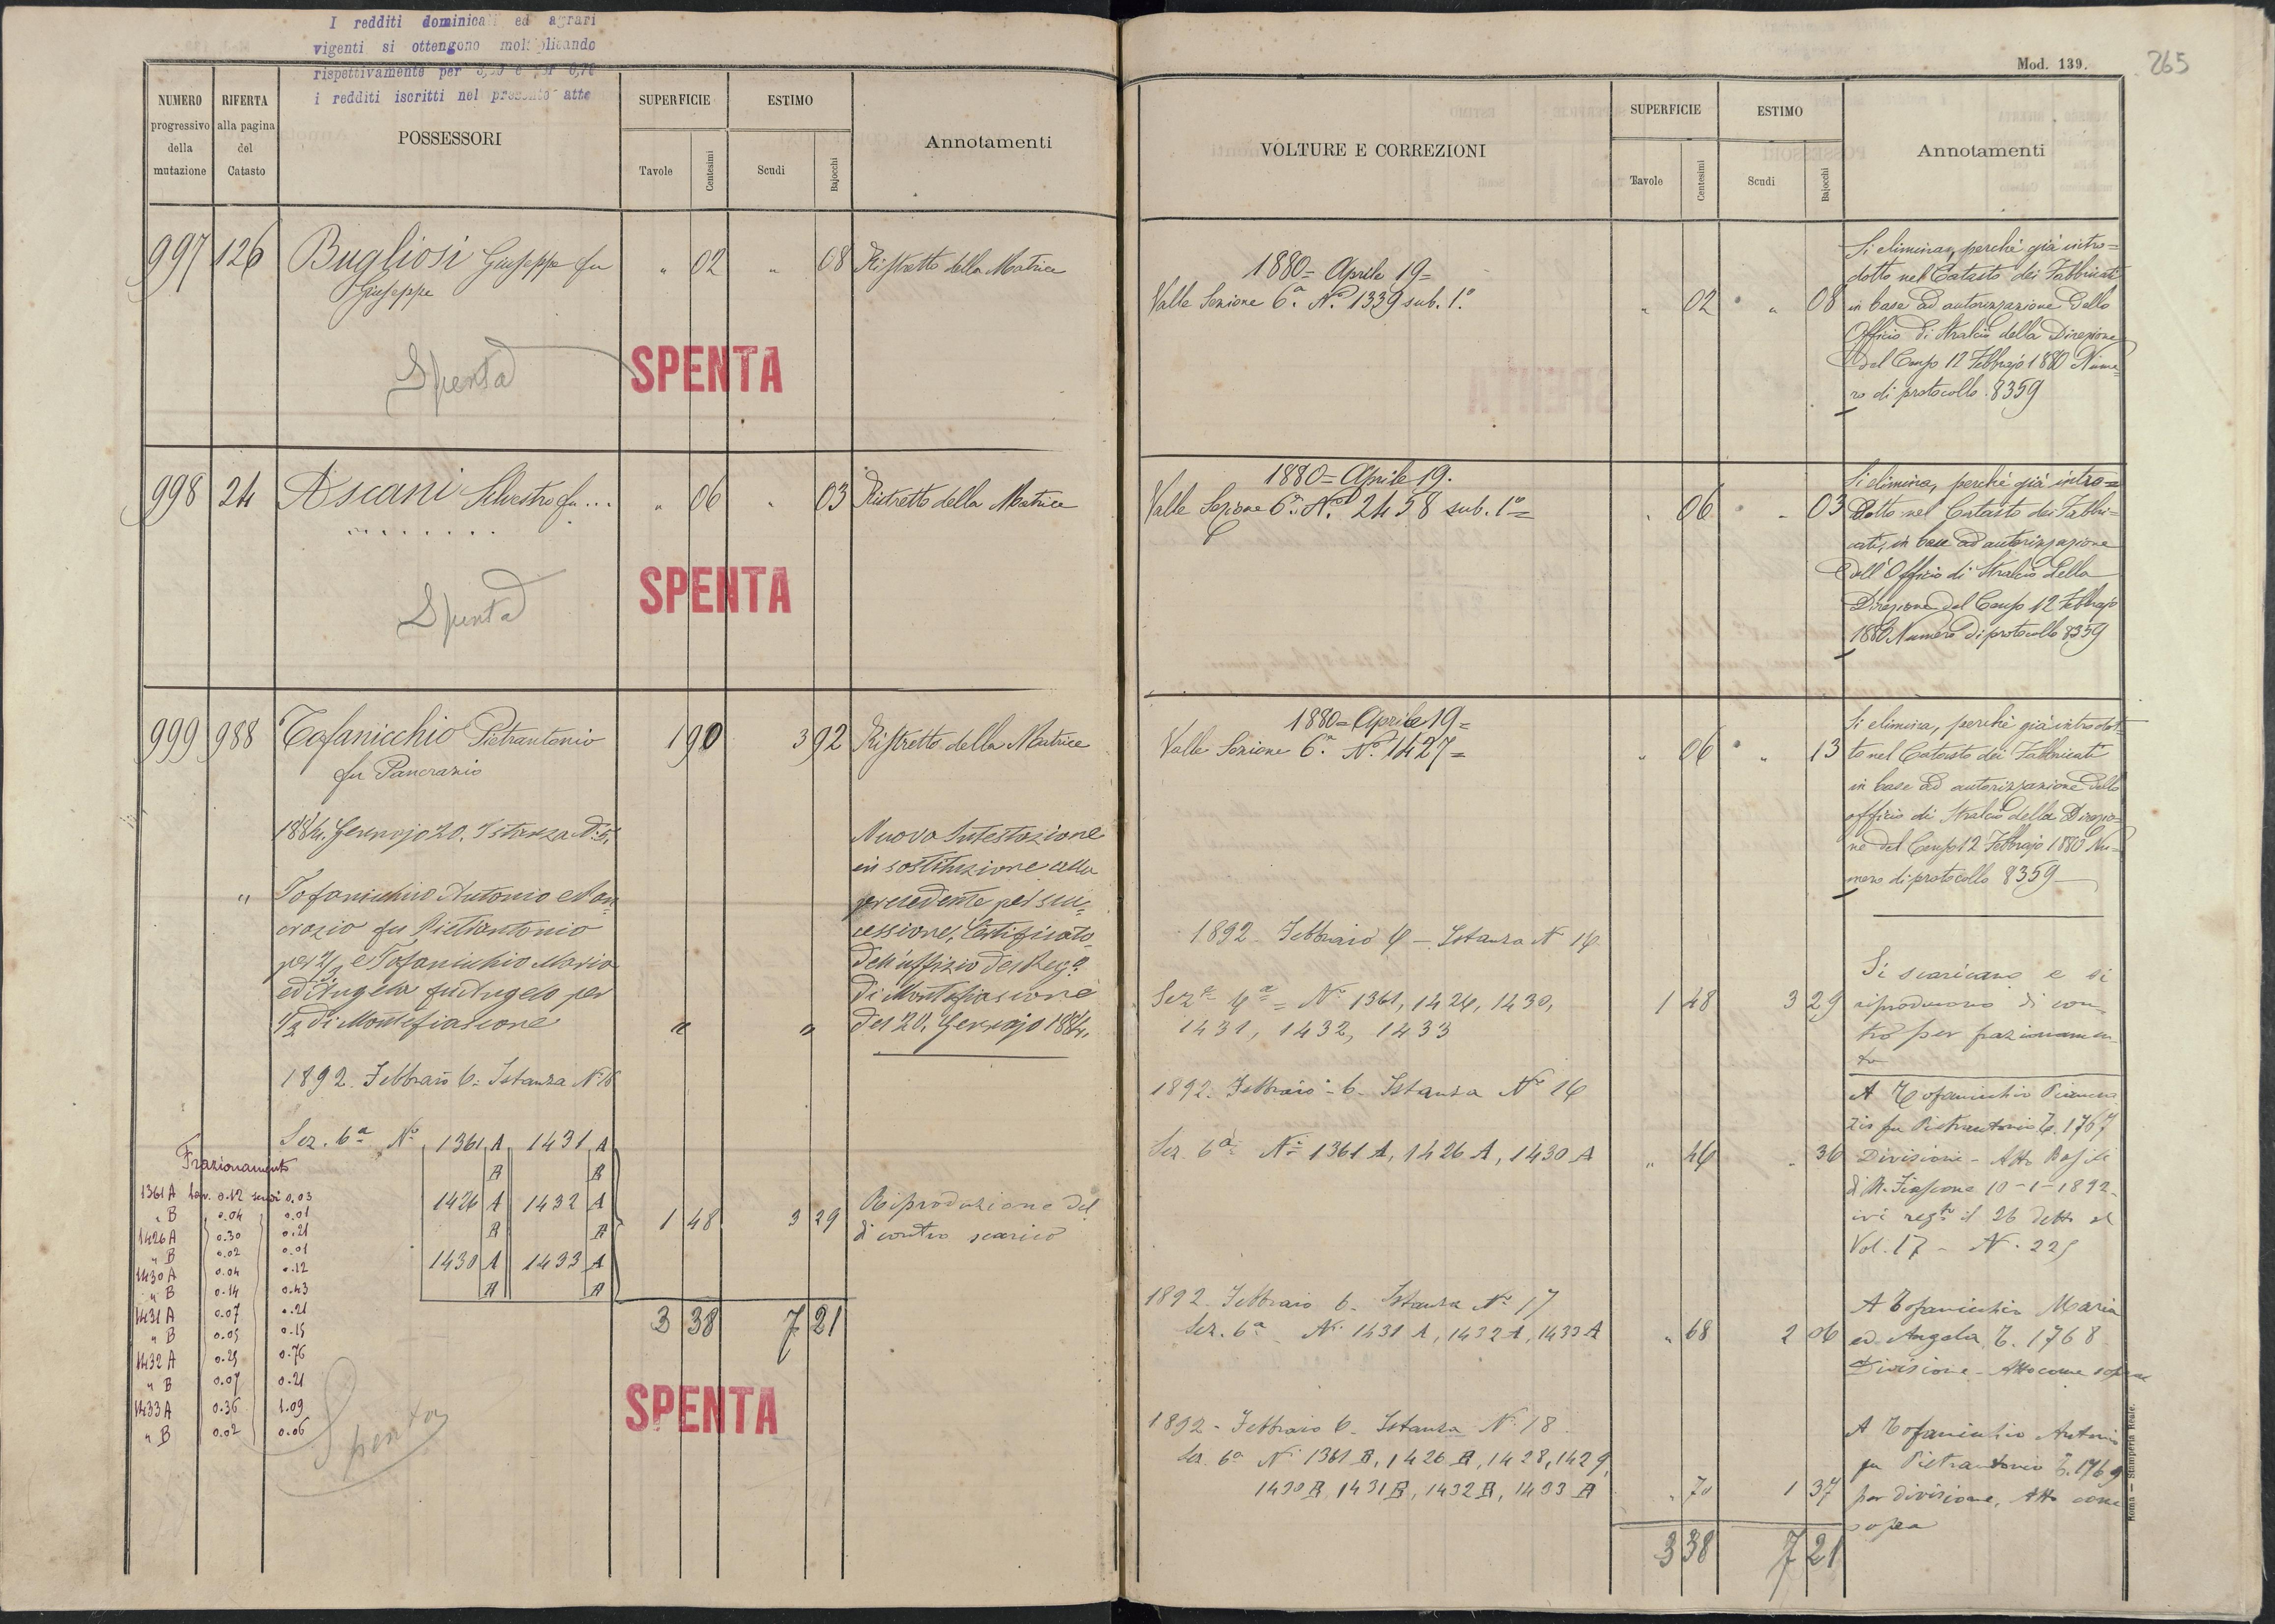 I redditi dominicali ed agrari
vigenti si ottengono moltiplicando
rispettivamente per
i redditi iscritti nel presente atto
NUMERO progressivo della mutazione
RIFERTA alla pagina del Catasto
POSSESSORI
SUPERFICIE
Tavole Centesimi
ESTIMO
Scudi Bajocchi
Annotamenti
997 126 Bugliosi Giuseppe fu " 02 " 08 Ristretto della Matrice
Giuseppe
Spenta SPENTA
998 24 Ascani Silvestro fu ... " 06 " 03 Ristretto della Matrice
. . . . . . . .
Spenta SPENTA
999 988 Tofanicchio Pietrantonio 1 90 3 92 Ristretto della Matrice
fu Pancrazio
1884. Gennajo 20. Istanza N. 5.
" Tofanicchio Antonio e Pan
crazio fu Pietrantonio
per 2/3 e Tofanicchio Maria
ed Angela fu Angelo per
1/3 di Montefiascone " "
Nuova Intestazione
in sostituzione alla
precedente per suc-
cessione, Certificato
dell'uffizio del Reg.o
di Montefiascone
del 20. Gennajo 1884.
1892. Febbraio 6 = Istanza N 16
Sez. 6a No 1361 A 1431 A
B B
1426 A 1432 A
B B
1430 A 1433 A
B B
1 48 3 29
Riproduzione del
di contro scarico
3 38 7 21
SPENTA
Spenta
Frazionamento
1361 A tav. 0.12 scudi 0.03
" B 0.04 0.01
1426 A 0.30 0.21
" B 0.02 0.01
1430 A 0.04 0.12
" B 0.14 0.43
1431 A 0.07 0.21
" B 0.05 0.15
1432 A 0.25 0.76
" B 0.07 0.21
1433 A 0.36 1.09
" B 0.02 0.06
Mod. 139.
265
VOLTURE E CORREZIONI
SUPERFICIE
Tavole Centesimi
ESTIMO
Scudi Bajocchi
Annotamenti
1880 = Aprile 19 =
Valle Sezione 6.a No. 1339 sub. 1.o " 02 " 08
Si elimina, perchè già intro=
dotto nel Catasto dei Fabbricati
in base ad autorizzazione dello
Officio di Stralcio della Direzione
del Censo 12 Febbrajo 1880 Nume
ro di protocollo 8359
1880 = Aprile 19.
Valle Sezione 6.a No. 2458 sub. 1o = " 06 " 03
Si elimina, perchè già intro=
dotto nel Catasto dei Fabbri=
cati, in base ad autorizzazione
dell'Officio di Stralcio della
Direzione del Censo 12 Febbrajo
1880 Numero di protocollo 8359
1880 = Aprile 19 =
Valle Sezione 6.a No. 1427 = " 06 " 13
Si elimina, perchè già introdot-
to nel Catasto dei Fabbricati
in base ad autorizzazione dello
officio di Stralcio della Direzio-
ne del Censo 12 Febbrajo 1880 Nu-
mero di protocollo 8359
1892 Febbraio 6 - Istanza N 16
Seze 6a = No 1361, 1426, 1430, 1 48 3 29
1431, 1432, 1433
Si scaricano e si
riproducono di con
tro per frazionamen
to
1892. Febbraio - 6. Istanza No 16
Sez. 6a No 1361 A, 1426 A, 1430 A " 46 " 36
A Tofanicchio Pancra
zio fu Pietrantonio T. 1767
Divisione - Atto
10-1-1892
ivi regto il 26 detto al
Vol. 17 - N. 225
1892 Febbraio 6. Istanza No 17
Sez. 6a No. 1431 A, 1432 A, 1433 A " 68 2 06
A Tofanicchio Maria
ed Angela T. 1768
Divisione - Atto come sopra
1892 - Febbraio 6. Istanza N. 18
Sez. 6a No 1361 B, 1426 B, 1428, 1429,
1430 B, 1431 B, 1432 B, 1433 B " 70 1 37
A Tofanicchio Antonio
fu Pietrantonio T. 1769
per divisione, Atto come
sopra
3 38 7 21
Roma — Stamperia Reale.